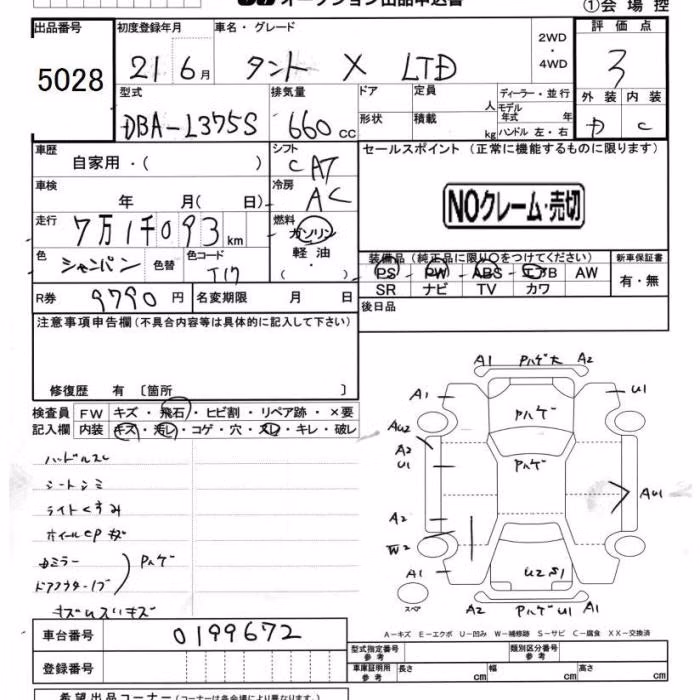 オークション出品申込書
①会場控
出品番号 初度登録年月 車名・グレード 2WD・4WD 評価点
5028 21 6月 タント X LTD 3
型式 排気量 ドア 定員 人 ディーラー・並行 外装 内装
モデル年式 年
DBA-L375S 660cc 形状 積載 kg ハンドル 左・右 C
車歴 シフト セールスポイント(正常に機能するものに限ります)
自家用・( ) CAT
車検 冷房 NOクレーム・売切
年 月( 日) AC
走行 燃料
7万1千093km ガソリン
軽油
・( )
色 シャンパン 色替 色コード T17
装備品(純正品に限り○をつけてください) 新車保証書
PS PW ABS エアB AW 有・無
SR ナビ TV カワ
R券 9790円 名変期限 月 日 後日品
注意事項申告欄(不具合内容等は具体的に記入して下さい)
修復歴 有〔箇所 〕
検査員記入欄 FW キズ・飛石・ヒビ割・リペア跡・×要
内装 キズ・汚レ・コゲ・穴・スレ・キレ・破レ
ハンドルスレ
シートシミ
ライトくすみ
ホイールCPキズ
ミラー
ドアアウターハブ
Pハゲ
A1 Pハゲ大 A2
A1 U1
Pハゲ
AU2
A2
U1 Pハゲ
AU1
A2
W2
A1 U2 S1
スペア
A2 PハゲU1 A1
A-キズ E-エクボ U-凹み W-補修跡 S-サビ C-腐食 XX-交換済
車台番号 0199672
型式指定番号 参考 類別区分番号 参考
登録番号 車庫証明用 参考 長さ cm 幅 cm 高さ cm
希望出品コーナー(コーナーは各会場により異なります。)